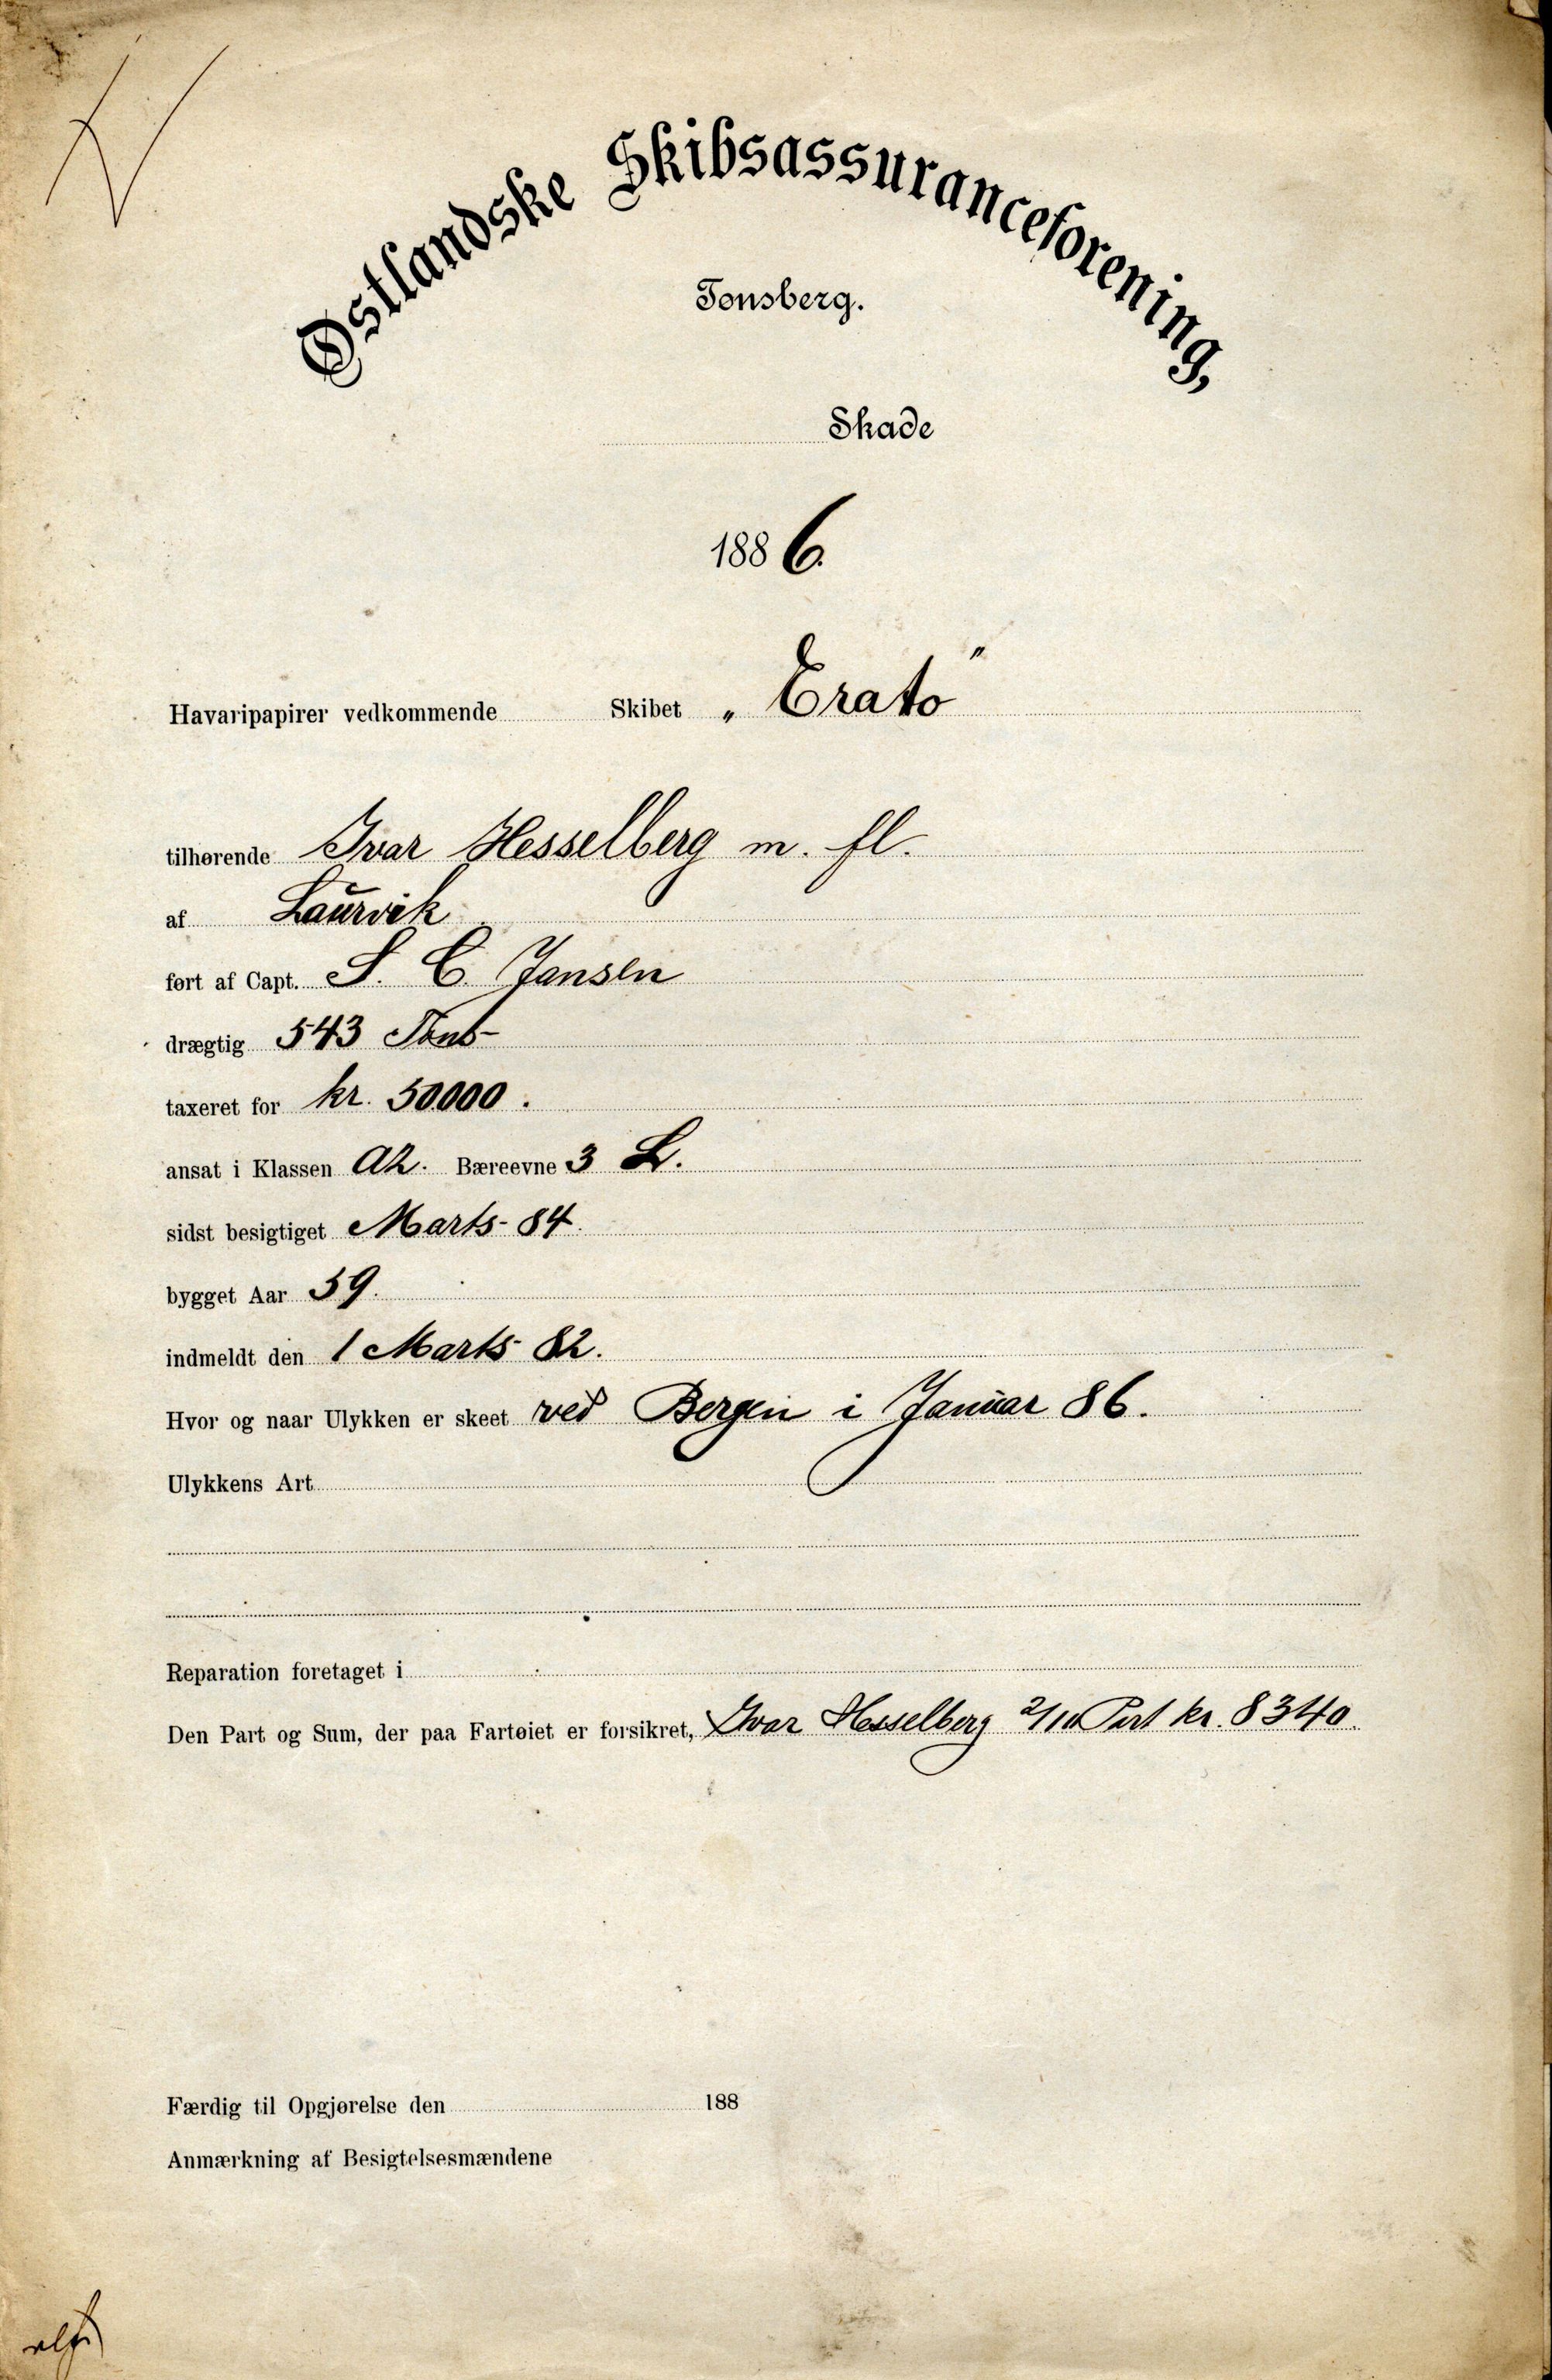 Østlandske Skibsassuranceforening,
Tønsberg.
Skade
1886.
Havaripapirer vedkommende Skibet „Erato"
tilhørende Ivar Hesselberg m. fl.
af Laurvik
ført af Capt. S. C. Jansen
drægtig 543 Tons
taxeret for kr. 50000.
ansat i Klassen A2. Bæreevne 3 L.
sidst besigtiget Marts- 84.
bygget Aar 59.
indmeldt den 1 Marts 82.
Hvor og naar Ulykken er skeet ved Bergen i Januar 86.
Ulykkens Art
Reparation foretaget i
Den Part og Sum, der paa Fartøiet er forsikret, Ivar Hesselberg 2/10 Part kr. 8340.
Færdig til Opgjørelse den 188
Anmærkning af Besigtelsesmændene